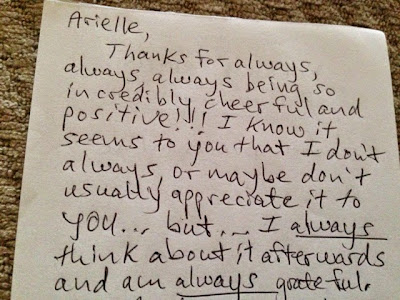 Arielle,
Thanks for always,
always, always being so
incredibly cheerful and
positive!!! I know it
seems to you that I don't
always, or maybe don't
usually appreciate it to
you... but... I always
think about it afterwards
and am always grateful.